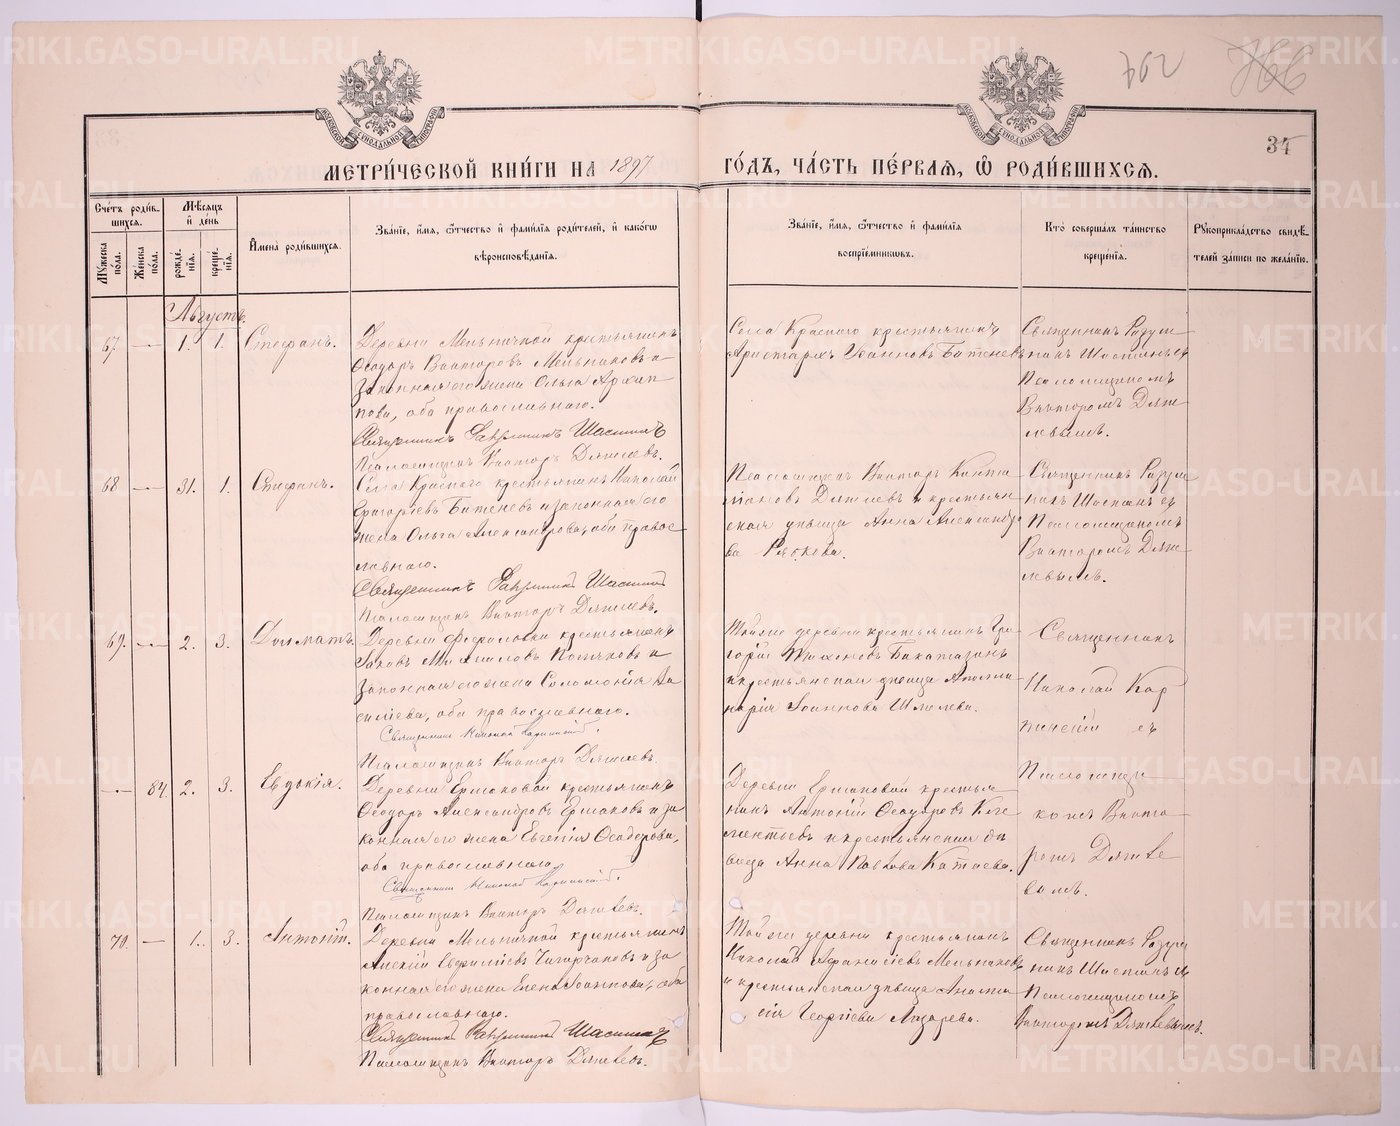 34
МЕТРИ́ЧЕСКОЙ КНИ́ГИ НА 1897
ГО́ДЪ, ЧА́СТЬ ПЕ́РВАЯ, Ѡ РОДИ́ВШИХСЯ.
Сче́тъ роди́в-
шихся.
Му́жеска
по́ла.
Же́нска
по́ла.
Мѣ́сяцъ
и де́нь
рожде́-
нія.
креще́-
нія.
Имена̀ роди́вшихся.
Зва́ніе, и́мя, о́тчество и фами́лія роди́телей, и како́гѡ
вѣроисповѣ́данія.
Зва́ніе, и́мя, о́тчество и фами́лія
воспріе́мниковъ.
Кто̀ соверша́лъ та́инство
креще́нія.
Рꙋкоприкла́дство свидѣ́-
телей за́писи по жела́нію.
Августъ.
67. — 1. 1. Стефанъ.
Деревни Мельничной крестьянинъ
Ѳеодоръ Викторовъ Мельниковъ и
законная его жена Ольга Архип-
пова, оба православнаго.
Священникъ Разумникъ Шастинъ
Псаломщикъ Викторъ Дягилевъ.
Села Краснаго крестьянинъ
Аристархъ Іоанновъ Батеневъ
Священникъ Разум-
никъ Шастинъ съ
Псаломщикомъ
Викторомъ Дяги-
левымъ.
68 — 31. 1. Стефанъ.
Села Краснаго крестьянинъ Николай
Григорьевъ Батеневъ и законная его
жена Ольга Александрова, оба правос-
лавнаго.
Священникъ Разумникъ Шастинъ
Псаломщикъ Викторъ Дягилевъ.
Псаломщикъ Викторъ Конста
новъ Дягилевъ и крестьян
ская дѣвица Анна Александро
ва Рякова.
Священникъ Разум-
никъ Шастинъ съ
Псаломщикомъ
Викторомъ Дяги-
левымъ.
69. — 2. 3. Доиматъ.
крестьянинъ
Іаковъ Михаиловъ и
законная его жена Соломонія Ва
силіева, оба православнаго.
Священникъ Николай
Псаломщикъ Викторъ Дягилевъ.
Той же деревни крестьянинъ Гри
горій Тихоновъ
и крестьянская дѣвица Аполли
нарія Іоаннова Шмелева.
Священникъ
Николай
съ
— 84. 2. 3. Евдокія.
Деревни Ермаковой крестьянинъ
Ѳеодоръ Александровъ Ермаковъ и за
конная его жена Евгенія Ѳеодорова,
оба православнаго
Священникъ Николай
Псаломщикъ Викторъ Дягилевъ.
Деревни Ермаковой крестья-
нинъ Антоній Ѳеодоровъ Кле
ментьевъ и крестьянская дѣ
вица Анна Павлова Катаева.
Псаломщи-
комъ Викто-
ромъ Дягиле
вымъ.
70. — 1. 3. Антоній.
Деревни Мельничной крестьянинъ
Алексій и за
конная его жена Елена Іоаннова, оба
православнаго.
Священникъ Разумникъ Шастинъ
Псаломщикъ Викторъ Дягилевъ.
Той же деревни крестьянинъ
Николай Аѳанасіевъ Мельниковъ
и крестьянская дѣвица Анаста
сія Георгіева Лазарева.
Священникъ Разум
никъ Шастинъ съ
Псаломщикомъ
Викторомъ Дягилевымъ.
METRIKI.GASO-URAL.RU